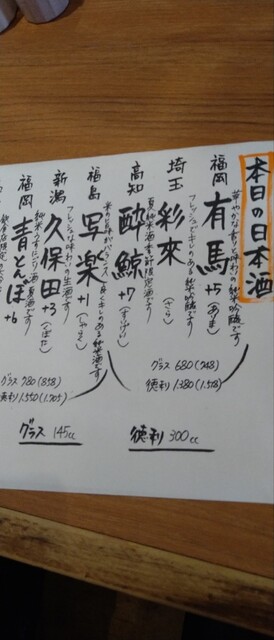 本日の日本酒
福岡 有馬 +5 (ありま)
華やかな香りと味わいの純米吟醸です
埼玉 彩來 (さら)
フレッシュでキレのある純米吟醸です
高知 酔鯨 +7 (すいげい)
夏純米酒 季節限定酒です
福島 写楽 +1 (しゃらく)
米の旨味がバランス良くキレのある純米酒です
新潟 久保田 +3 (くぼた)
フレッシュな味わいの生酒です
福岡 青とんぼ +6
純米うすにごり酒
グラス 680 (748)
徳利 1.380 (1.518)
グラス 780 (858)
徳利 1.550 (1.705)
グラス 145cc
徳利 300cc